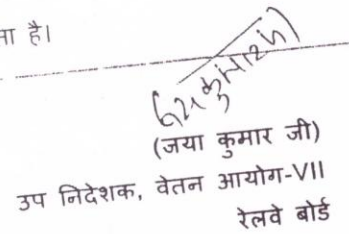 है।
(जया कुमार जी)
उप निदेशक, वेतन आयोग-VII
रेलवे बोर्ड